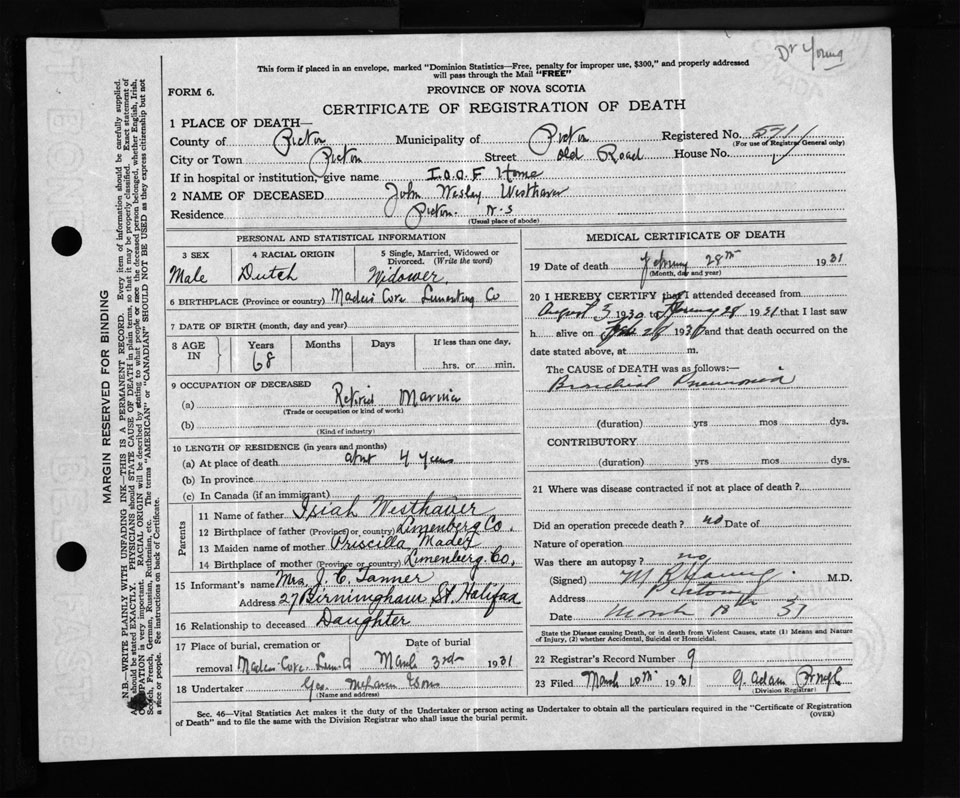 Dr Young
This form if placed in an envelope, marked "Dominion Statistics—Free, penalty for improper use, $300," and properly addressed
will pass through the Mail "FREE"
FORM 6.
PROVINCE OF NOVA SCOTIA
CERTIFICATE OF REGISTRATION OF DEATH
1 PLACE OF DEATH—
County of Pictou Municipality of Pictou Registered No. 5711
(For use of Registrar General only)
City or Town Pictou Street Old Road House No.
If in hospital or institution, give name I.O.O.F Home
2 NAME OF DECEASED John Wesley Westhaver
Residence Pictou N.S
(Usual place of abode)
PERSONAL AND STATISTICAL INFORMATION
3 SEX 4 RACIAL ORIGIN 5 Single, Married, Widowed or Divorced. (Write the word)
Male Dutch Widower
6 BIRTHPLACE (Province or country) Maders Cove Lunenburg Co
7 DATE OF BIRTH (month, day and year)
8 AGE IN Years Months Days If less than one day,
68 hrs. or min.
9 OCCUPATION OF DECEASED
(a) Retired Mariner
(Trade or occupation or kind of work)
(b)
(Kind of industry)
10 LENGTH OF RESIDENCE (in years and months)
(a) At place of death abt 4 years
(b) In province
(c) In Canada (if an immigrant)
Parents
11 Name of father Isiah Westhaver
12 Birthplace of father (Province or country) Lunenberg Co.
13 Maiden name of mother Priscilla Mader
14 Birthplace of mother (Province or country) Lunenberg. Co.
15 Informant's name Mrs. J. C. Tanner
Address 27 Birmingham St. Halifax
16 Relationship to deceased Daughter
17 Place of burial, cremation or Date of burial
removal Maders Cove. Lun. Co March 3rd 1931
18 Undertaker Geo. & Sons
(Name and address)
MEDICAL CERTIFICATE OF DEATH
19 Date of death February 28th 1931
(Month, day and year)
20 I HEREBY CERTIFY that I attended deceased from
August 5 1930 to February 28 1931 that I last saw
h alive on Feb 28 193 and that death occurred on the
date stated above, at m.
The CAUSE OF DEATH was as follows:—
Bronchial Pneumonia
(duration) yrs mos dys.
CONTRIBUTORY
(duration) yrs mos dys.
21 Where was disease contracted if not at place of death?
Did an operation precede death? no Date of
Nature of operation
Was there an autopsy? no
(Signed) Young M.D.
Address Pictou
Date March 18th 31
State the Disease causing Death, or in death from Violent Causes, state (1) Means and Nature
of Injury, (2) whether Accidental, Suicidal or Homicidal.
22 Registrar's Record Number 9
23 Filed March 10th 1931 G. Adam
(Division Registrar)
Sec. 46—Vital Statistics Act makes it the duty of the Undertaker or person acting as Undertaker to obtain all the particulars required in the "Certificate of Registration
of Death" and to file the same with the Division Registrar who shall issue the burial permit. (OVER)
MARGIN RESERVED FOR BINDING
N.B.—WRITE PLAINLY WITH UNFADING INK—THIS IS A PERMANENT RECORD. Every item of information should be carefully supplied.
should be stated EXACTLY. PHYSICIANS should STATE CAUSE OF DEATH in plain terms, so that it may be properly classified. Exact statement of
OCCUPATION is very important. RACIAL ORIGIN will be described by stating to what people or race the deceased person belonged, whether English, Irish,
Scotch, French, German, Russian, Ruthenian, etc. The terms "AMERICAN" or "CANADIAN" SHOULD NOT BE USED as they express citizenship but not
a race or people. See instructions on back of Certificate.